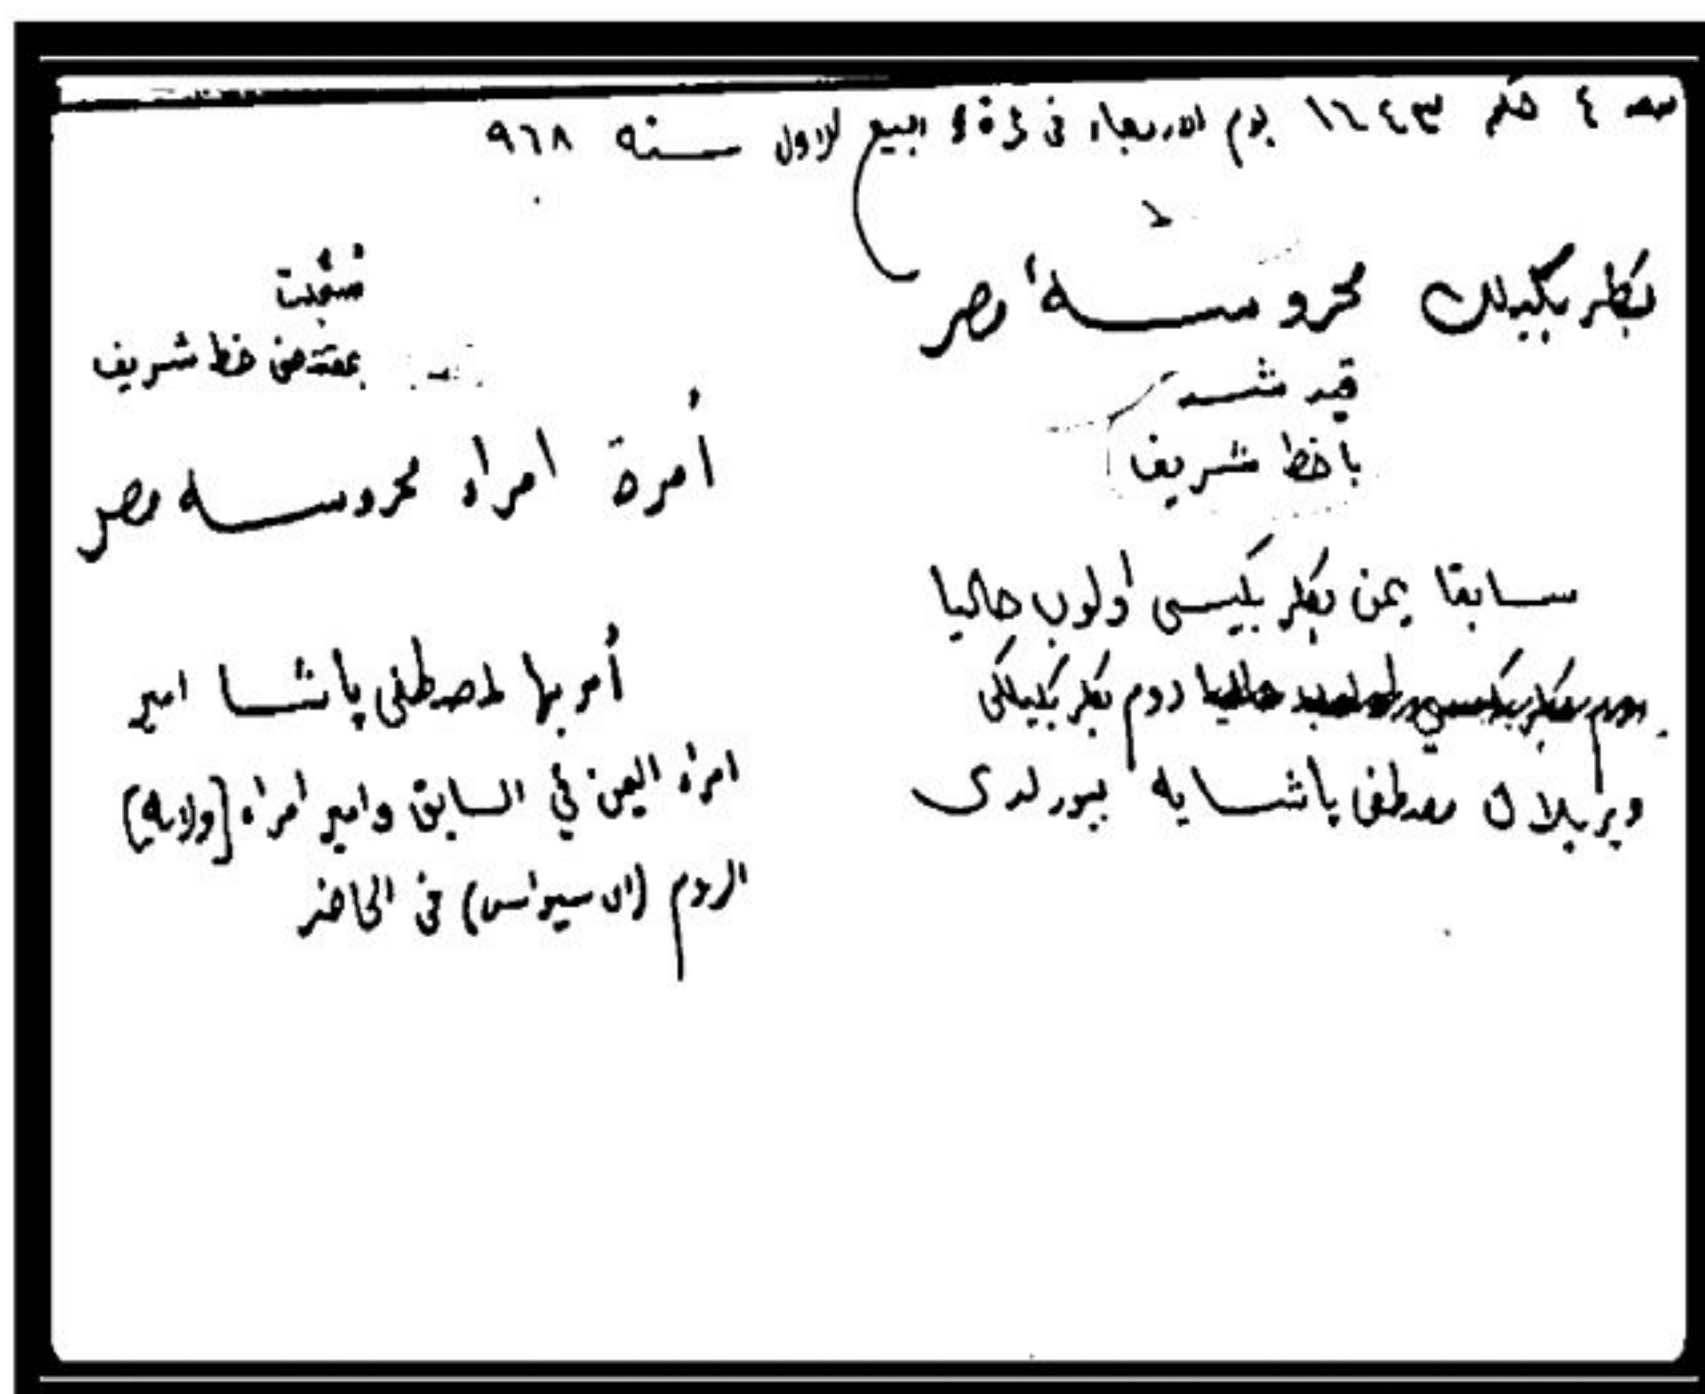 ٤ حكم ١٦٤٣ يوم الاربعاء فى غرة ربيع الاول سنه ٩٦٨
بكلربكيلك محروسهٔ مصر
قيد شد
با خط شريف
سابقا يمن بكلربكيسى اولوب حاليا
روم بكلربكيلكى
ويريلان مصطفى پاشايه بيورلدى
سُجّلت
بمقتضى خط شريف
أُمرة امراء محروسه مصر
أُمر بها لمصطفى پاشا امير
امراء اليمن في السابق وامير امراء [ولاية]
الروم (اى سيواس) فى الحاضر